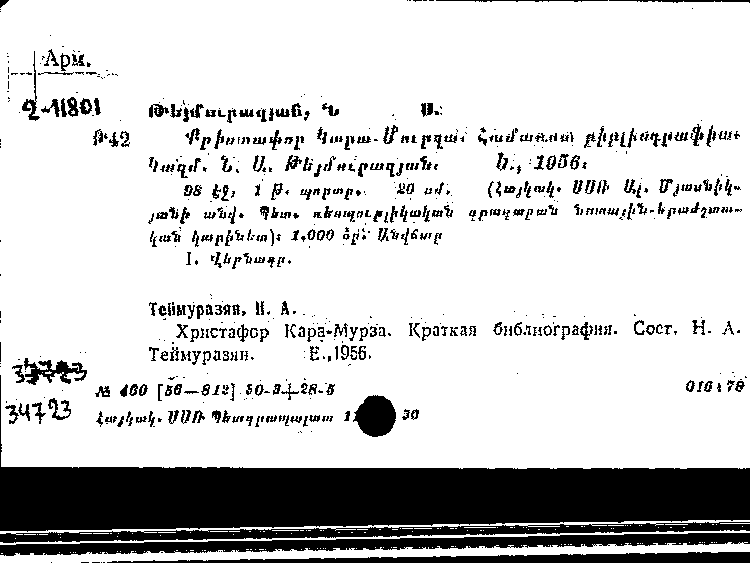 Арм.
2-11801
Թեյմուրազյան, Ն Ա.
Թ42 Քրիստափոր Կարա-Մուրզա։ Համառոտ բիբլիոգրաֆիա։
Կազմ. Ն. Ա. Թեյմուրազյան։ Ե., 1956։
98 էջ, 1 թ. պորտր. 20 սմ. (Հայկակ. ՍՍՌ Ալ. Մյասնիկ-
յանի անվ. Պետ. ռեսպուբլիկական գրադարան նոտային-երաժշտա-
կան կաբինետ)։ 1.000 օր. Անվճար
I. Վերնագր.
Теймуразян, Н. А.
Христафор Кара-Мурза. Краткая библиография. Сост. Н. А.
Теймуразян. Е., 1956.
№ 460 [56—812] 50-3+28-5 016։78
34723
Հայկակ. ՍՍՌ Պետգրապալատ 30